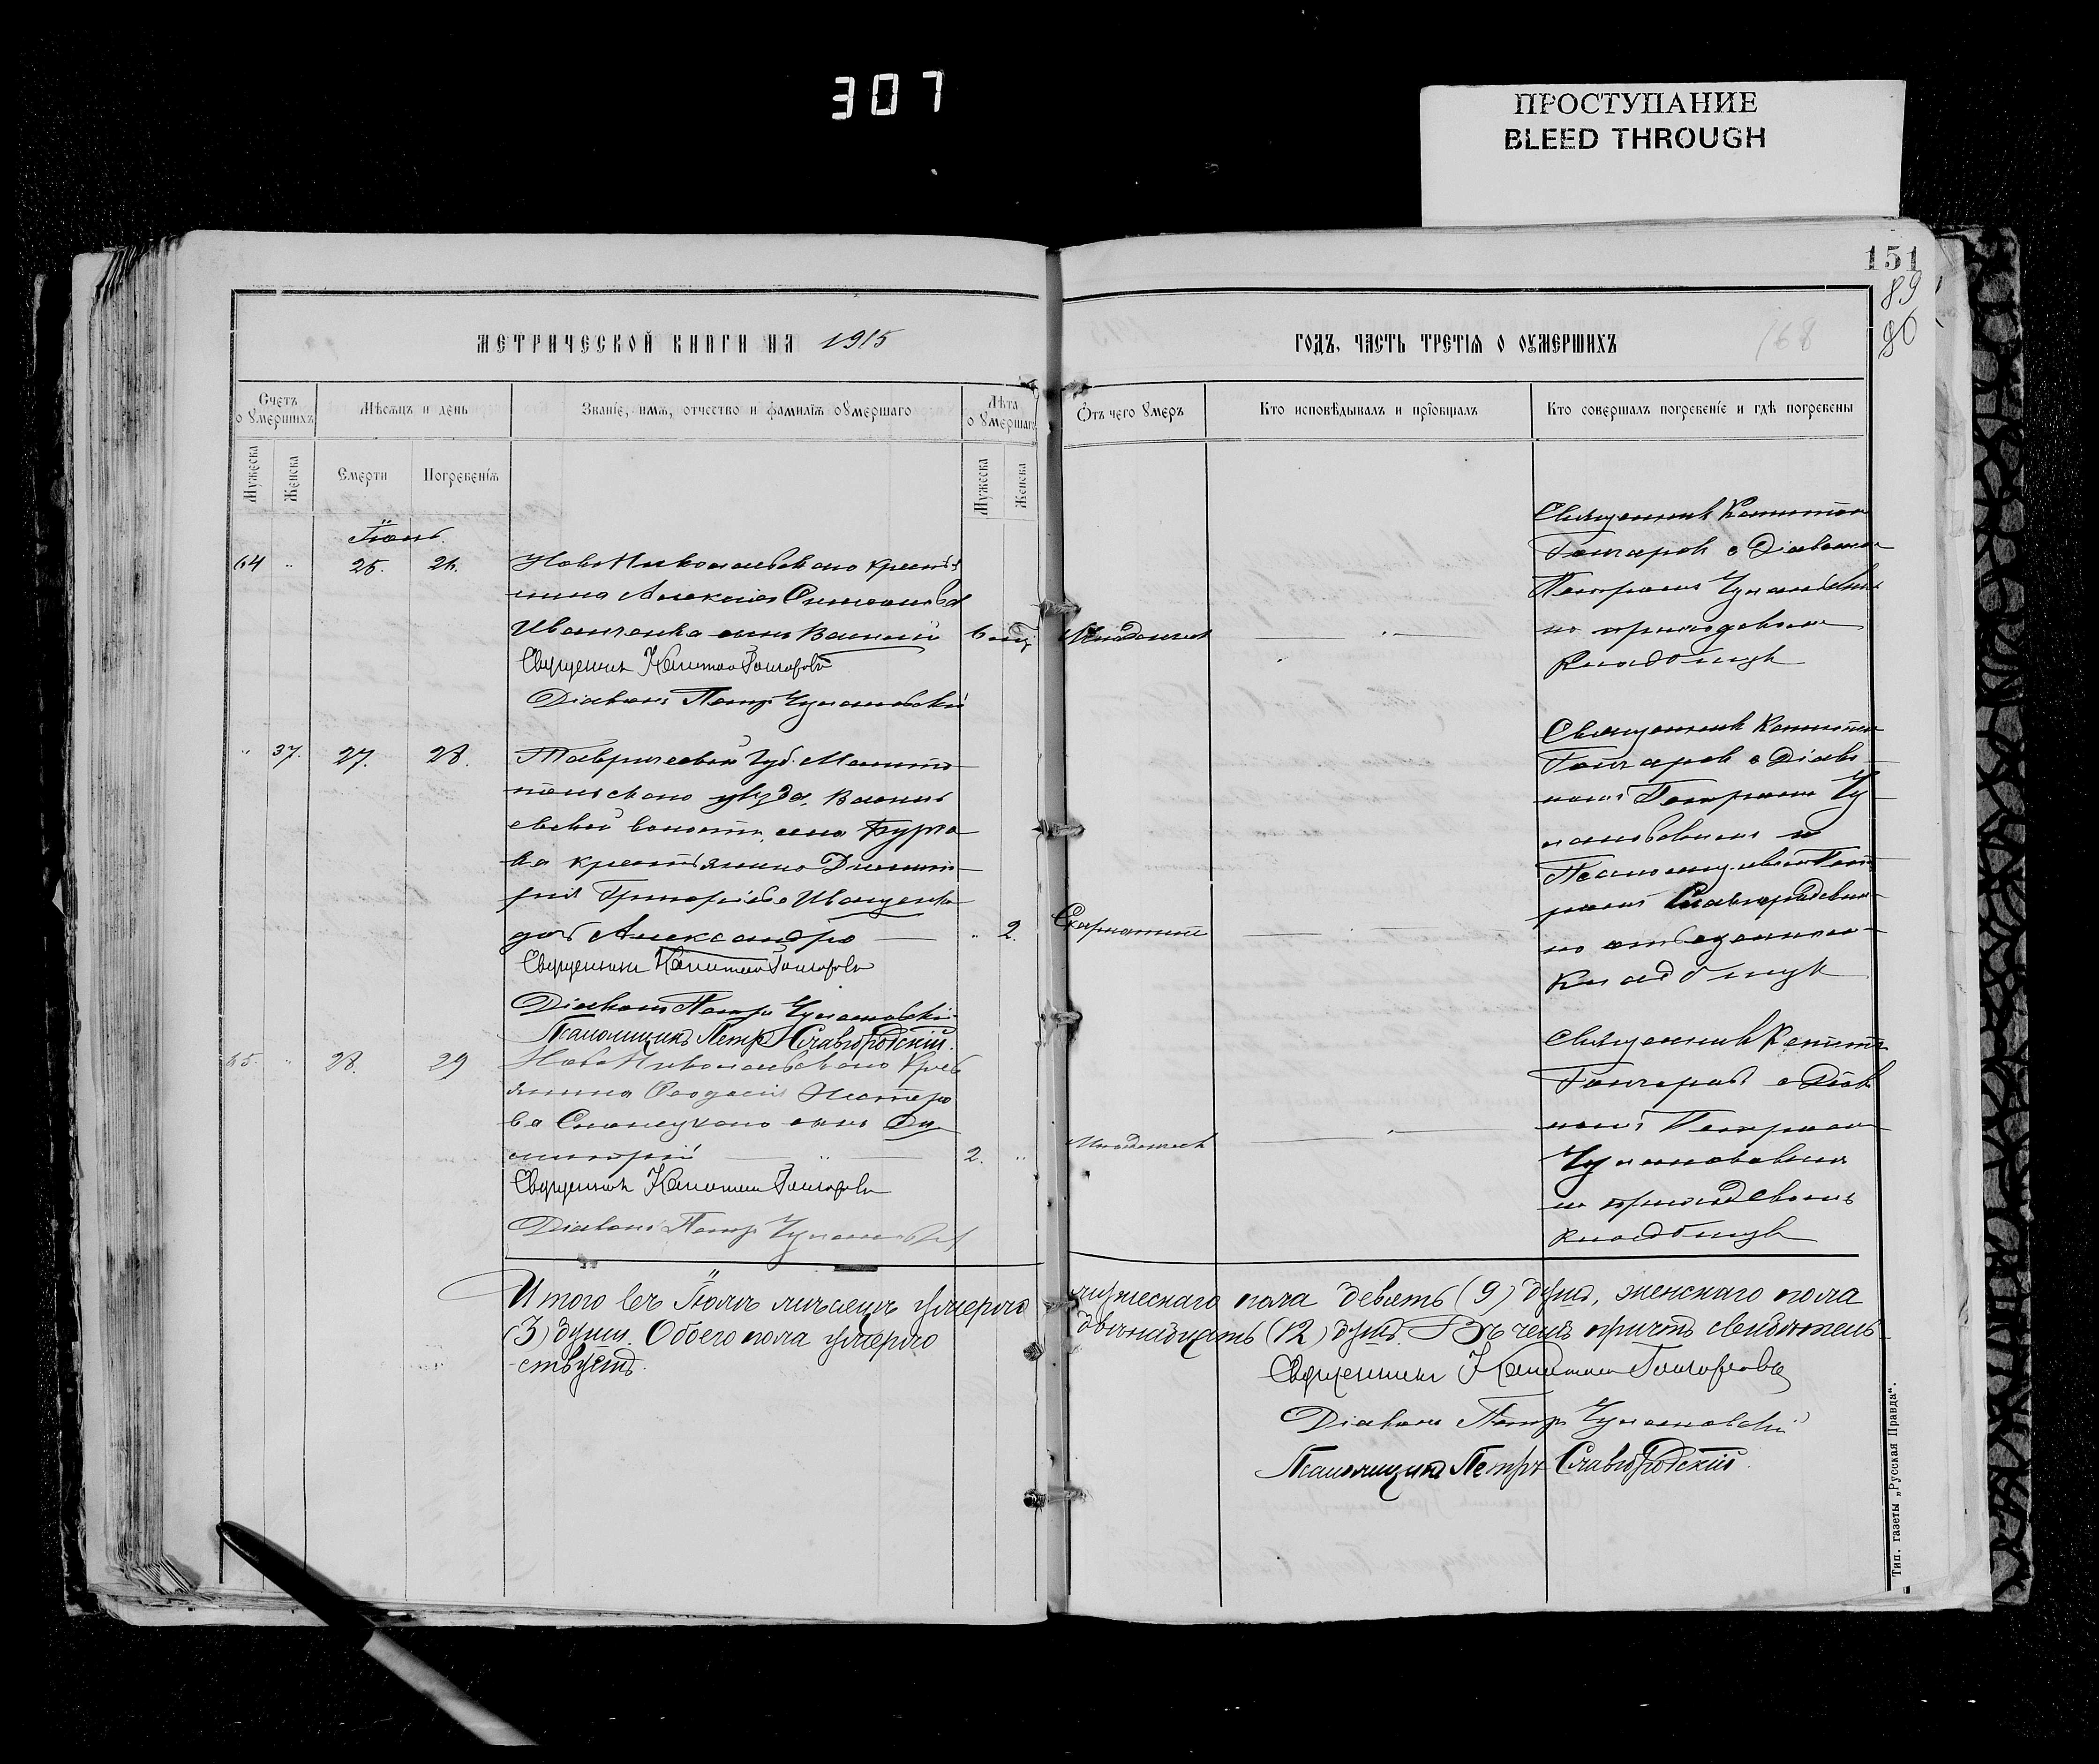 307
ПРОСТУПАНИЕ
BLEED THROUGH
151
89
86
168
МЕТРИЧЕСКОЙ КНИГИ НА 1915
ГОДЪ, ЧАСТЬ ТРЕТІЯ О ОУМЕРШИХЪ
Счетъ о умершихъ
Мѣсяцъ и день
Званіе, имя, отчество и фамилія оумершаго
Лѣта оумершаго
Отъ чего умеръ
Кто исповѣдывалъ и пріобщалъ
Кто совершалъ погребеніе и гдѣ погребены
Мужеска
Женска
Смерти
Погребенія
Мужеска
Женска
Іюнь.
64 " 25. 26. НовоНикольскаго крестья
нина Алексія Симонова
Иванченка сынъ Василій 6 Младенчес
Священникъ Капитонъ Гончаровъ
Діаконъ Петръ Чумановскій
Священникъ Капитонъ
Гончаровъ с Діаконом
Петромъ Чумановским
на приходском
кладбищѣ
" 37. 27. 28. Таврической Губ. Мелито
польскаго уѣзда, Василь
евской волости, села Бурча
ка крестьянина Димит
рія Григорьева Иващенка
дочь Александра " 2. Скарлатины
Священникъ Капитонъ Гончаровъ
Діаконъ Петръ Чумановскій
Псаломщикъ Петръ Славгородскій.
Священникъ Капитон
Гончаровъ с Діако
номъ Петромъ Чу
мановскимъ и
Псаломщиком Пет
ромъ Славгородским
на отведенном
кладбищѣ
65. " 28. 29 НовоНикольскаго крест
янина Феодосія Нестеро
ва сынъ Ди
митрій " 2. " Младенчес
Священникъ Капитонъ Гончаровъ
Діаконъ Петръ Чумановскій
Священникъ Капитон
Гончаровъ с Діако
номъ Петромъ
Чумановским
на приходскомъ
кладбищѣ
Итого въ Іюнѣ мѣсяцѣ умерло мужескаго пола девять (9) душъ, женскаго пола
(3) души. Обоего пола умерло двѣнадцать (12) душъ. Въ чемъ причтъ свидѣтель-
ствуетъ.
Священникъ Капитонъ Гончаровъ
Діаконъ Петръ Чумановскій
Псаломщикъ Петръ Славгородскій.
Тип. газеты „Русская Правда“.